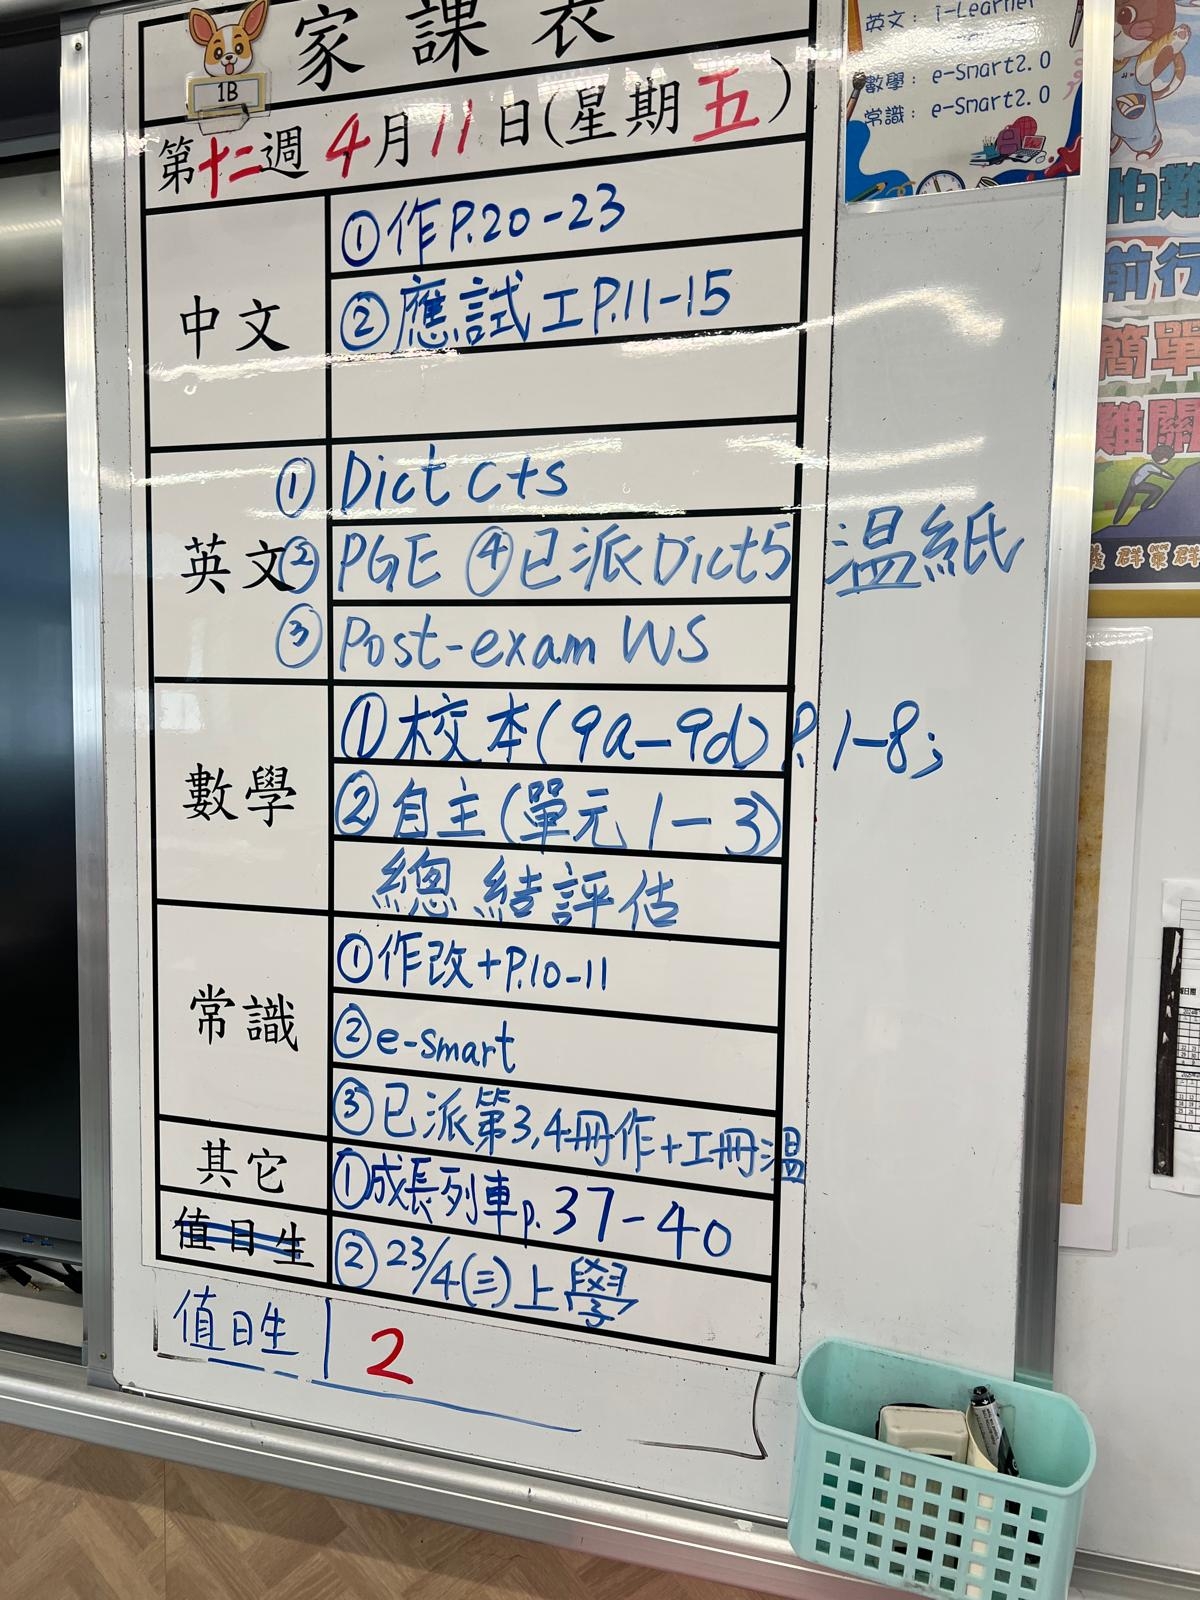 家課表
1B
第十二週 4月11日(星期五)
中文
①作P.20-23
②應試工P.11-15
英文
① Dict c+s
② PGE ④已派Dict5 温紙
③ Post-exam WS
數學
①校本(9a-9d) P.1-8;
②自主(單元1-3)
總結評估
常識
①作改+P.10-11
②e-smart
③已派第3,4冊作+工冊溫
其它
①成長列車p.37-40
值日生
②23/4(三)上學
值日生 2
英文: i-Learner
數學: e-Smart2.0
常識: e-Smart2.0
怕難
前行
簡單
難關